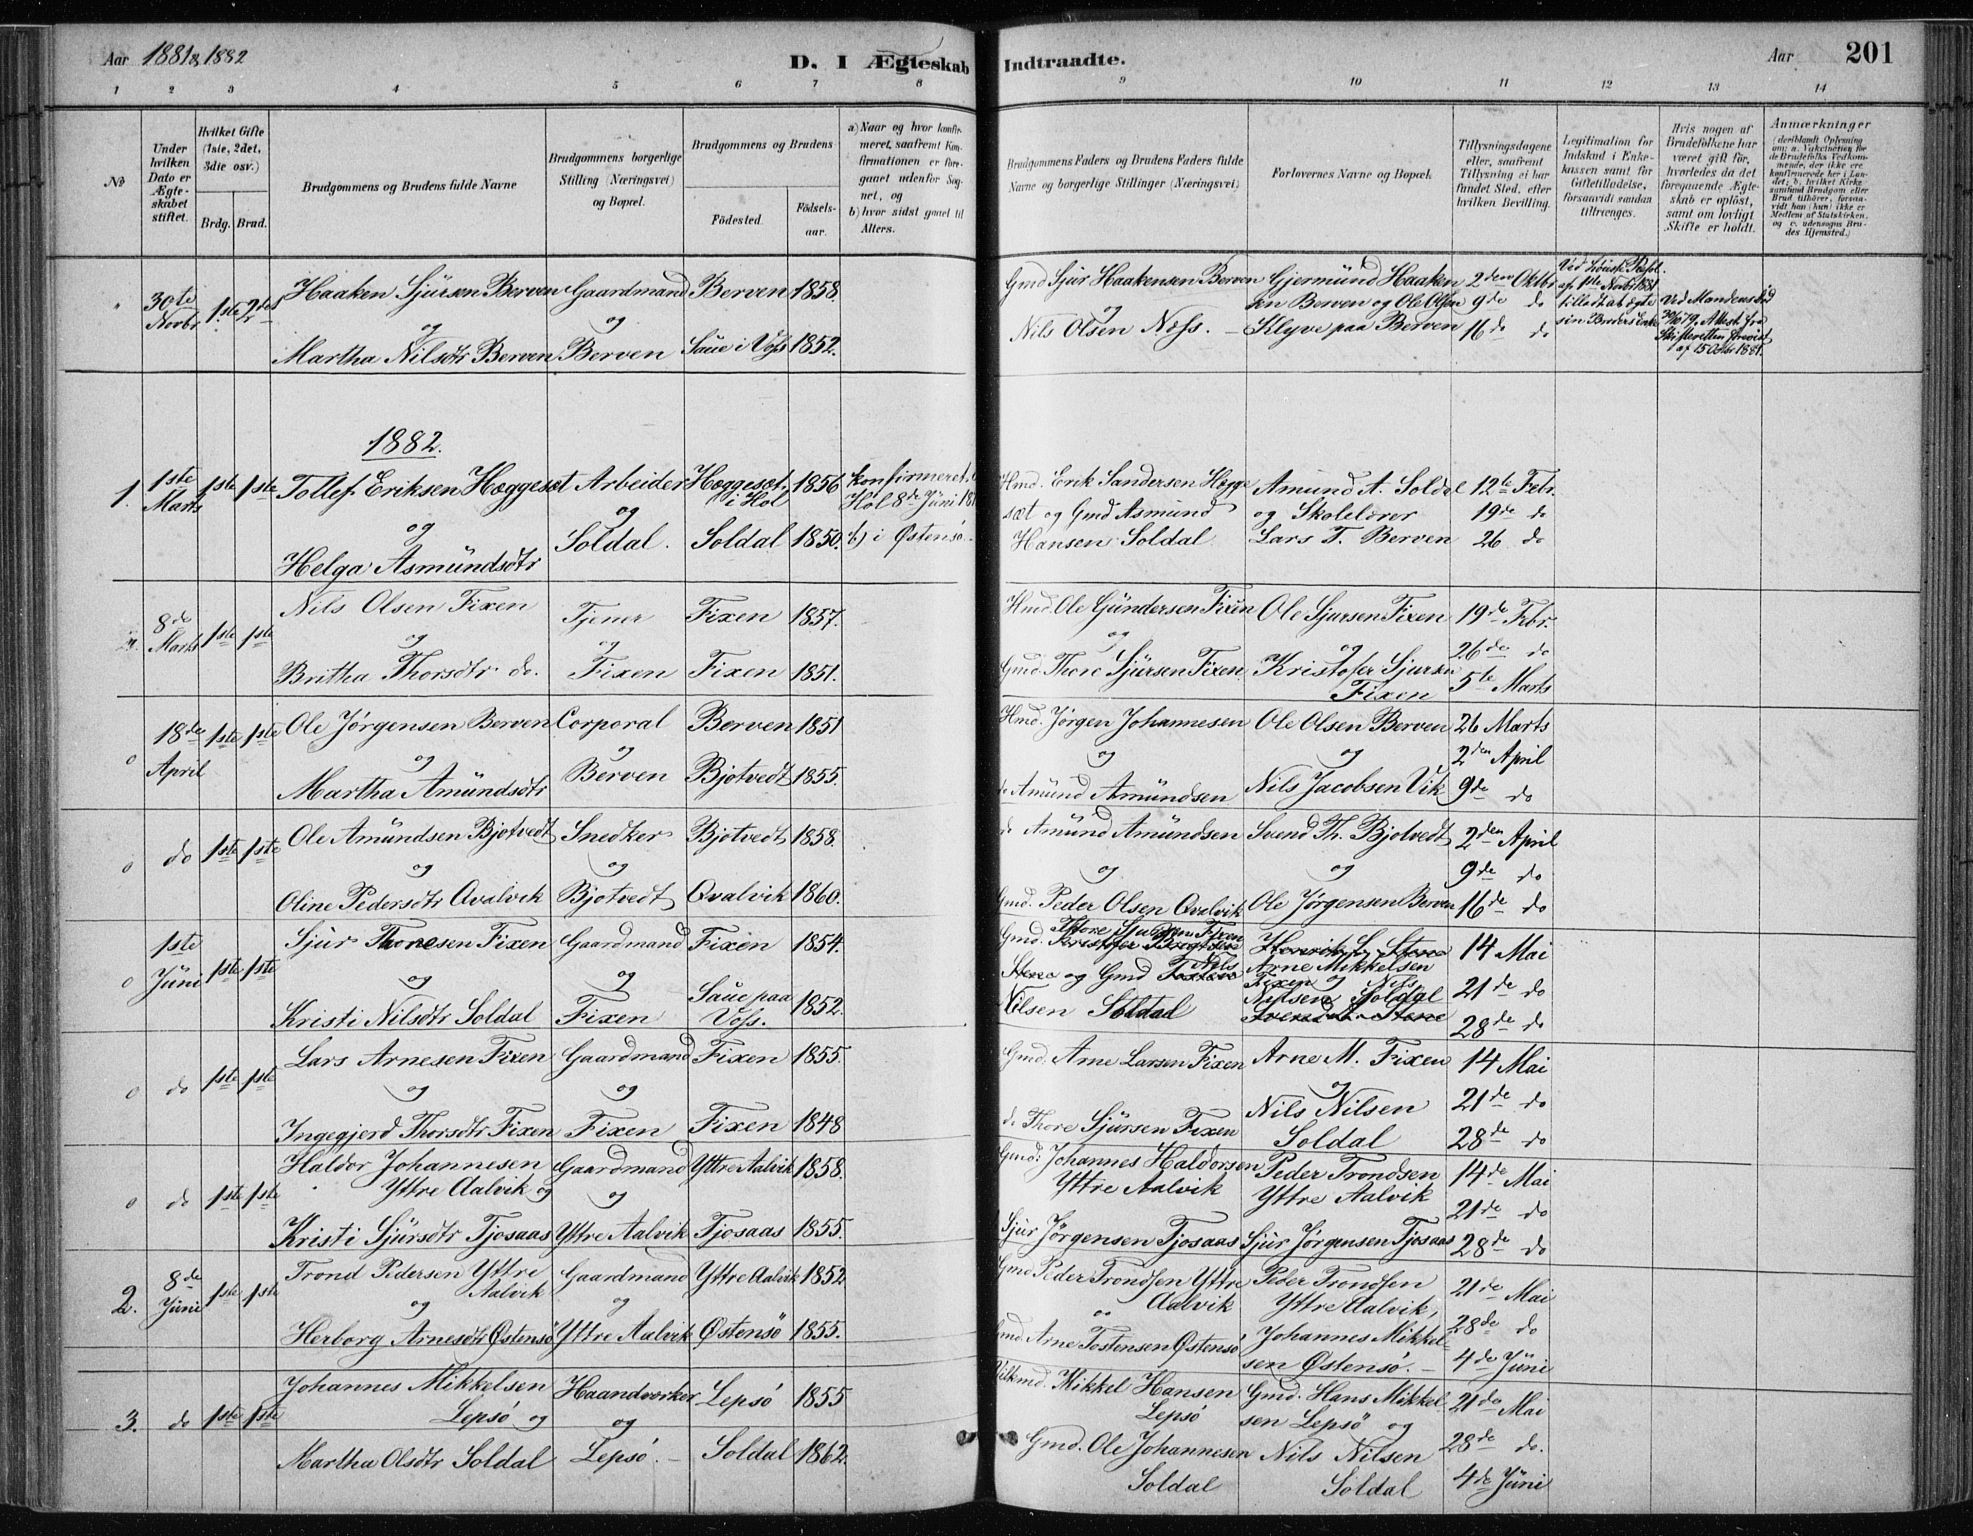 Aar 1881 & 1882
D. I Ægteskab Indtraadte.
Aar 201
1 2 3 4 5 6 7 8 9 10 11 12 13 14
No
Under hvilken Dato er Ægte-skabet stiftet.
Hvilket Gifte (1ste, 2det, 3die osv.)
Brdg. Brud.
Brudgommens og Brudens fulde Navne
Brudgommens borgerlige Stilling (Næringsvei) og Bopæl.
Brudgommens og Brudens
Fødested. Fødsels-aar.
a) Naar og hvor konfir-meret, saafremt Kon-firmationen er fore-gaaet udenfor Sog-net, og
b) hvor sidst gaaet til Alters.
Brudgommens Faders og Brudens Faders fulde Navne og borgerlige Stillinger (Næringsvei)
Forlovernes Navne og Bopæl.
Tillysningsdagene eller, saafremt Tillysning ei har fundet Sted, efter hvilken Bevilling.
Legitimation for Indskud i Enke-kassen samt for Giftetilladelse, forsaavidt saadan tiltrænges.
Hvis nogen af Brudefolkene har været gift før, hvorledes da det foregaaende Ægte-skab er opløst, samt om lovligt Skifte er holdt.
Anmærkninger
(deriblandt Oplysning om: a. Vakcination for de Brudefolks Vedkom-mende, der ikke ere konfirmerede her i Lan-det; b. hvilket Kirke-samfund Brudgom eller Brud tilhører, forsaa-vidt han (hun) ikke er Medlem af Statskirken, og c. udensogns Bru-des Hjemsted.)
30te Novbr 1ste 2det
Haaken Sjursen Berven Gaardmand Berven 1858.
og og
Martha Nilsdtr Berven Berven Saue i Voss 1852.
Gmd Sjur Haakensen Berven Gjermund Haaken 2den Oktbr
og sen Berven og Ole Olsen 9de do
Nils Olsen Næss. – Klyve paa Berven 16de do
af 1ste Novbr 1881 tilladt at ægte sin Broders Enke
Ved Mandens Død Attest fra Skifteretten af 15 Oktbr 1881.
1882.
1. 1ste Marts 1ste 1ste
Tollef Eriksen Hæggeset Arbeider Hæggeset, i Hol 1856 Konfirmeret, Hol 8de Juni
og og
Helga Asmundsdtr Soldal. Soldal 1850. b) i Østensø.
Hmd. Erik Sandersen Hægge Amund A. Soldal 12te Febr.
sæt og Gmd Asmund og Skolelærer 19de do
Hansen Soldal Lars T. Berven 26 do
8de Marts 1ste 1ste
Nils Olsen Fixen Tjener Fixen 1857.
og og
Britha Thorsdtr do. Fixen Fixen 1851.
Hmd. Ole Gundersen Fixen Ole Sjursen Fixen 19de Febr.
og og 26de do
Gmd. Thore Sjursen Fixen Kristofer Sjursen Fixen 5te Marts
o 18de April 1ste 1ste
Ole Jørgensen Berven Corporal Berven 1851
og og
Martha Amundsdtr Berven Bjotvedt 1855.
Hmd. Jørgen Johannesen Ole Olsen Berven 26 Marts
og og 2den April
do Amund Amundsen Nils Jacobsen Vik 9de do
o do 1ste 1ste
Ole Amundsen Bjotvedt Snedker Bjotvedt 1858.
og og
Oline Pedersdtr Qvalvik Bjotvedt Qvalvik 1860.
do Amund Amundsen Svend Th. Bjotvedt 2den April
og og 9de do
Gmd. Peder Olsen Qvalvik Ole Jørgensen Berven 16de do
o 1ste Juni 1ste 1ste
Sjur Thoresen Fixen Gaardmand Fixen 1854.
og og
Kristi Nilsdtr Soldal Fixen Saue paa Voss. 1852.
Gmd. Thore Sjursen Fixen 14 Mai
Stene og Gmd Nils Arne Mikkelsen Fixen og Nils 21de do
Nilsen Soldal Nilsen Soldal 28de do
o do 1ste 1ste
Lars Arnesen Fixen Gaardmand Fixen 1855.
og og
Ingegjerd Thorsdtr Fixen Fixen Fixen 1848
Gmd. Arne Larsen Fixen Arne M. Fixen 14 Mai
og 21de do
do Thore Sjursen Fixen Nils Nilsen Soldal 28de do
o do 1ste 1ste
Haldor Johannesen Gaardmand Yttre Aalvik 1858.
Yttre Aalvik og og
Kristi Sjursdtr Tjosaas Yttre Aalvik Tjosaas 1855.
Gmd: Johannes Haldorsen Peder Trondsen 14de Mai
Yttre Aalvik Yttre Aalvik 21de do
Sjur Jørgensen Tjosaas Sjur Jørgensen Tjosaas 28de do
2. 8de Juni 1ste 1ste
Trond Pedersen Yttre Aalvik Gaardmand Yttre Aalvik 1852
og og
Herborg Arnesdtr Østensø Yttre Aalvik Østensö 1855.
Gmd Peder Trondsen Yttre Peder Trondsen 21de Mai
Aalvik Yttre Aalvik, 28de do
Gmd Arne Tostensen Østensø Johannes Mikkel-
sen Østensø. – 4de Juni
3. do 1ste 1ste
Johannes Mikkelsen Haandværker Lepsö 1855
Lepsö og og
Martha Olsdtr Soldal Lepsö. – Soldal 1862.
Mikkel Hansen Gmd. Hans Mikkel- 21de Mai
Lepsö sen Lepsö og
Gmd. Ole Johannesen Nils Nilsen 28de do.
Soldal Soldal 4de Juni